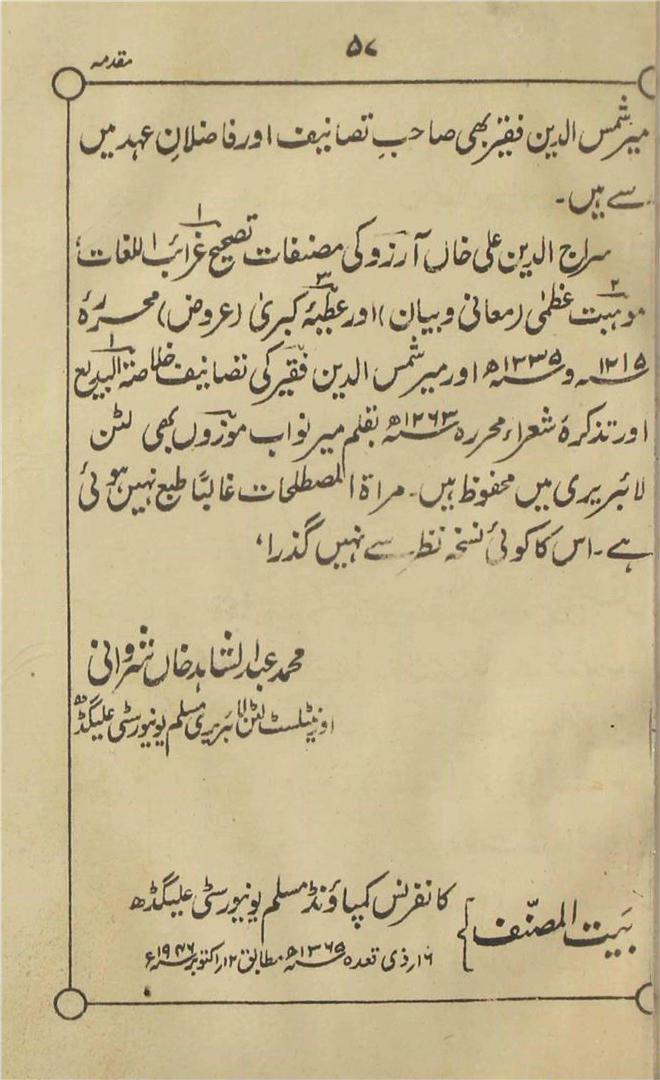 ۵۷
مقدمہ
میر شمس الدین فقیر بھی صاحبِ تصانیف اور فاضلانِ عہد میں
سے ہیں۔
سراج الدین علی خاں آرزو کی مصنفات تصحیح غرائب ۱ اللغات،
موہبت ۲ عظمٰی (معانی و بیان) اور عطیۂ ۳ کبریٰ (عروض) محررۂ
۱۲۱۵ھ و ۱۲۳۵ھ اور میر شمس الدین فقیر کی تصانیف خلاصۃ ۱ البدیع
اور تذکرۂ شعراء محررہ ۱۲۶۳ھ بقلم میر نواب موزوں بھی لٹن
لائبریری میں محفوظ ہیں۔ مراۃ المصطلحات غالبًا طبع نہیں ہوئی
ہے۔ اس کا کوئی نسخہ نظر سے نہیں گذرا،
محمد عبدالشاہد خاں شروانی
اورینٹلسٹ لٹن لائبریری مسلم یونیورسٹی علیگڈھ
بَیت المصنّف { کانفرنس کمپاؤنڈ مسلم یونیورسٹی علیگڈھ
۱۶ر ذی قعدہ ۱۳۶۵ھ مطابق ۱۲ر اکتوبر ۱۹۴۶ء